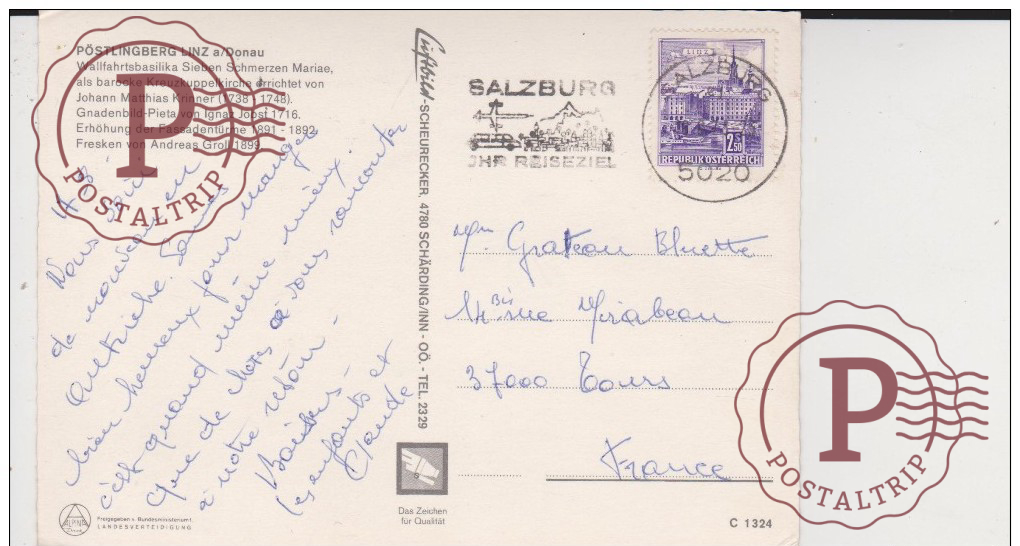 PÖSTLINGBERG LINZ a/Donau
Wallfahrtsbasilika Sieben Schmerzen Mariae,
als barocke Kreuzkuppelkirche errichtet von
Johann Matthias Krinner (1738 - 1748).
Gnadenbild-Pieta von Ignaz Jobst 1716.
Erhöhung der Fassadentürme 1891 - 1892.
Fresken von Andreas Groll 1899.
P
POSTALTRIP
Nous
de nouveau en
Autriche.
bien heureux pour manger
c'est quand même mieux.
que de choses à vous raconter
à notre retour -
Baisers -
les enfants et
Claude
ALPINA
Freigegeben v. Bundesministerium f.
LANDESVERTEIDIGUNG
Luftbild-SCHEURECKER, 4780 SCHÄRDING/INN - OÖ. - TEL. 2329
SALZBURG
JHR REISEZIEL
LINZ
2.50
REPUBLIK ÖSTERREICH
SALZBURG
5020
Grateau Bluette
14 Bis rue Mirabeau
37000 Tours
France
Das Zeichen
für Qualität
C 1324
P
POSTALTRIP